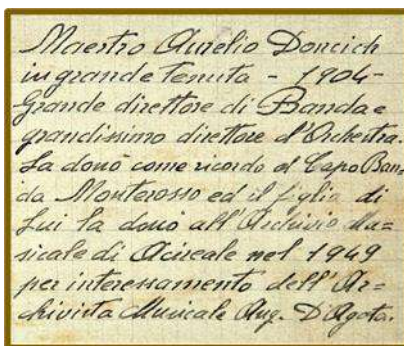 Maestro Aurelio Doncich
in grande tenuta - 1904 -
Grande direttore di Banda e
grandissimo direttore d'Orchestra.
La donò come ricordo al Capo Ban=
da Monterosso ed il figlio di
Lui la donò all'Archivio Mu=
sicale di Acireale nel 1949
per interessamento dell'Ar=
chivista Musicale Aug. D'Agota.